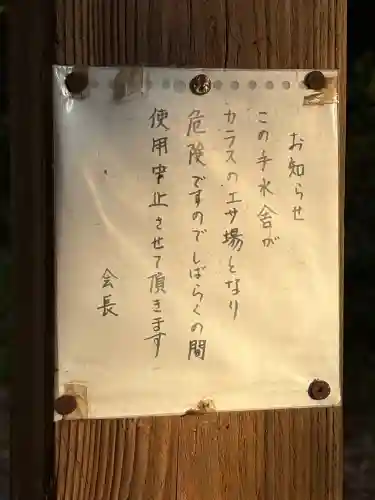 お知らせ
この手水舎が
カラスのエサ場となり
危険ですのでしばらくの間
使用中止させて頂きます
会長